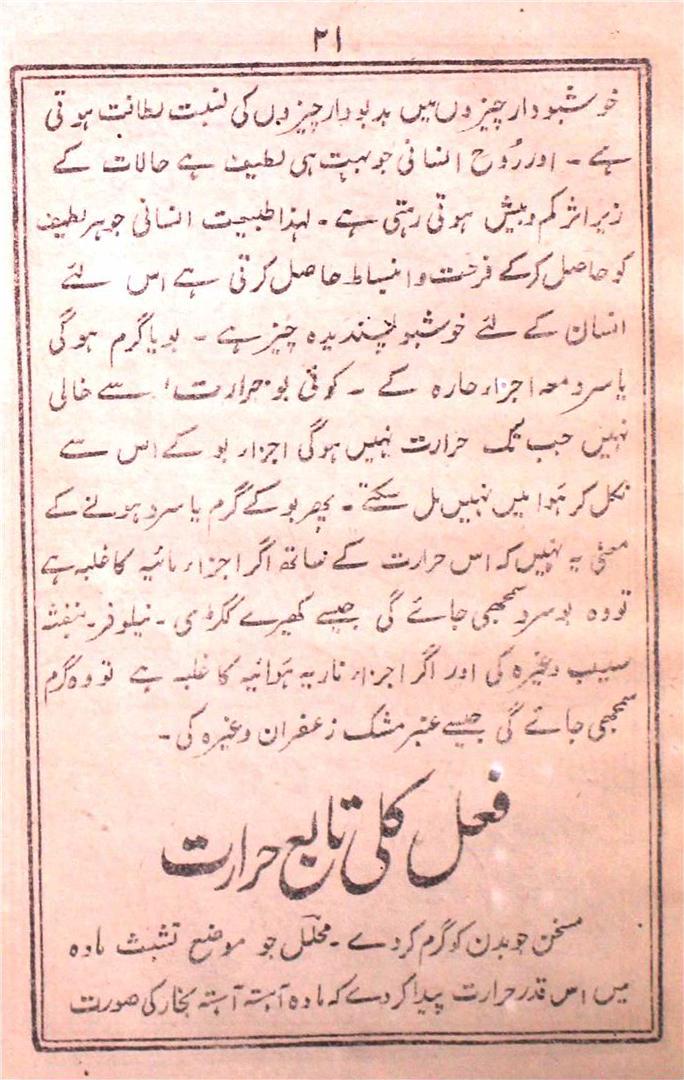 ۲۱
خوشبودار چیزوں میں بدبودار چیزوں کی نسبت لطافت ہوتی
ہے ۔ اور رُوح انسانی جو بہت ہی لطیف ہے حالات کے
زیر اثر کم و بیش ہوتی رہتی ہے ۔ لہذا طبیعت انسانی جوہر لطیف
کو حاصل کرکے فرحت و انبساط حاصل کرتی ہے اس لئے
انسان کے لئے خوشبو پسندیدہ چیز ہے ۔ بو یا گرم ہوگی
یا سرد معہ اجزاء حارہ کے ۔ کوئی بو حرارت سے خالی
نہیں جب تک حرارت نہیں ہوگی اجزاء بو کے اس سے
نکل کر ہَوا میں نہیں مل سکتے ۔ پھر بو کے گرم یا سرد ہونے کے
معنی یہ نہیں کہ اس حرارت کے ساتھ اگر اجزاء مائیہ کا غلبہ ہے
تو وہ بو سرد سمجھی جائے گی جیسے کھیرے ککڑی ۔ نیلوفر ۔ بنفشہ
سیب وغیرہ کی اور اگر اجزاء ناریہ ہَوائیہ کا غلبہ ہے تو وہ گرم
سمجھی جائے گی جیسے عنبر مشک زعفران وغیرہ کی ۔
فعل کلی تابع حرارت
مسخن جو بدن کو گرم کردے ۔ محلّل جو موضع تشبث مادہ
میں اس قدر حرارت پیدا کردے کہ مادہ آہستہ آہستہ بخار کی صورت